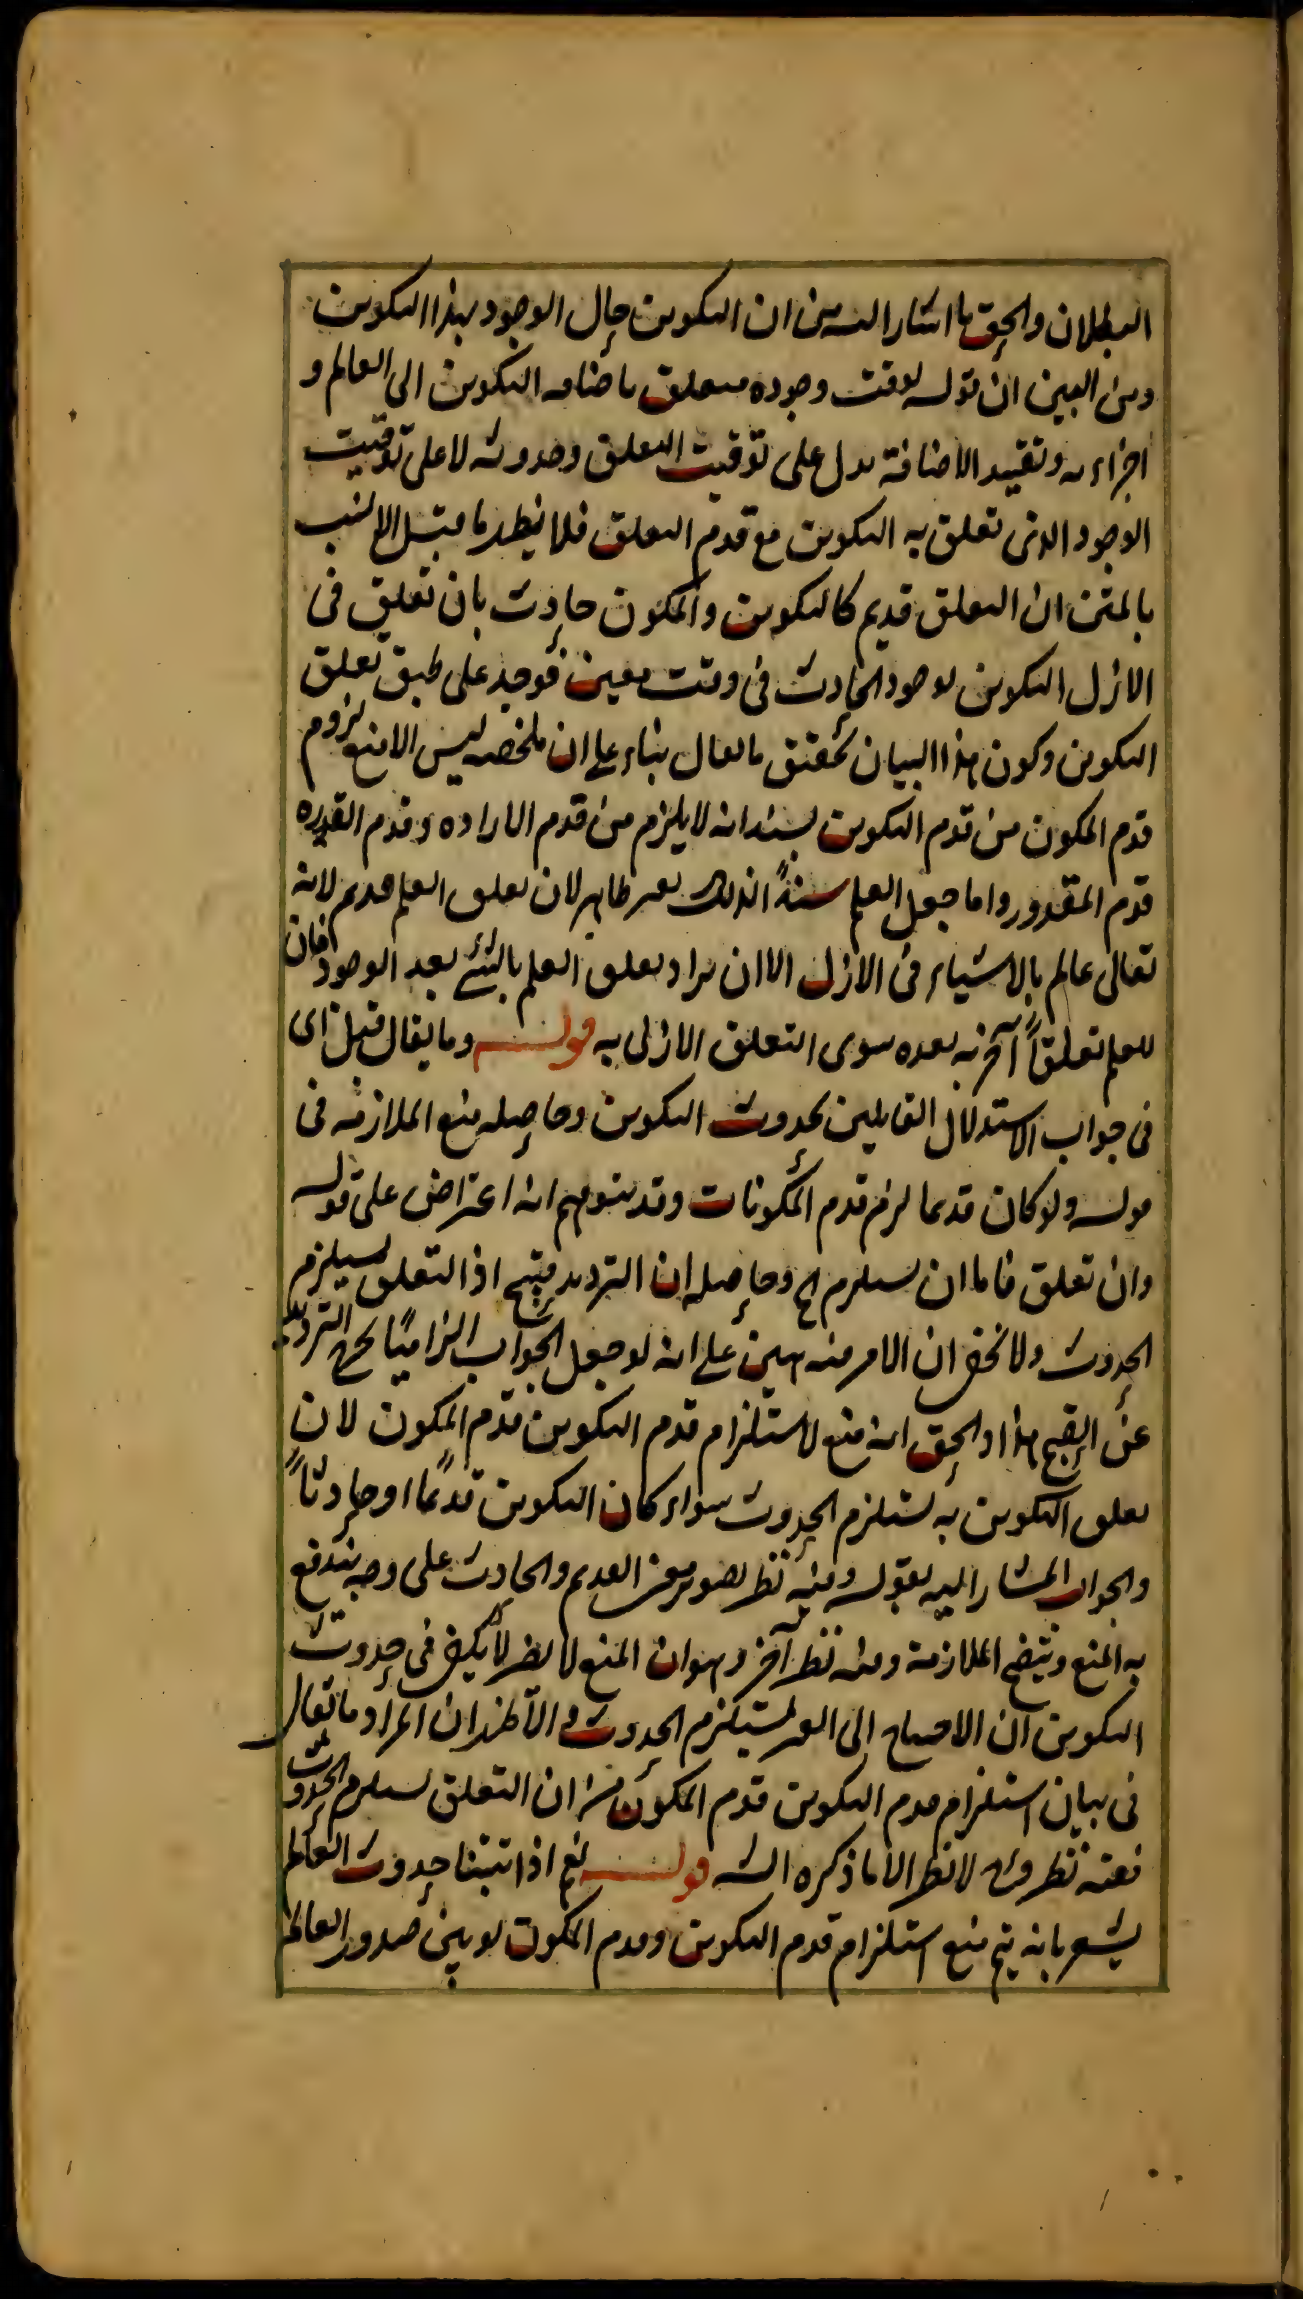 البطلان والحق ما اشار اليه من ان التكوين حال الوجود بهذا التكوين
ومن البين ان قوله لوقت وجوده متعلق باضافه التكوين الى العالم و
اجزاءه وتقييد الاضافة يدل على توقيت التعلق وحدوثه لا على توقيت
الوجود الذى تعلق به التكوين مع قدم التعلق فلا يظهر ما قيل الانسب
بالمتن ان التعلق قديم كالتكوين والمكون حادث بان تعلق فى
الازل التكوين لوجود الحادث فى وقت معين فوجد على طبق تعلق
التكوين وكون هذا البيان تحقيق ما يقال بناء على ان ملخصه ليس الا منع لزوم
قدم المكون من قدم التكوين بسند انه لا يلزم من قدم الاراده وقدم القدره
قدم المقدور واما جعل العلم سندًا لذلك فغير ظاهر لان تعلق العلم قديم لانه
تعالى عالم بالاشياء فى الازل الا ان يراد تعلق العلم بالشئ بعد الوجود فان
للعلم تعلقًا آخر به بعده سوى التعلق الازلى به قوله وما يقال قيل اى
فى جواب الاستدلال القايلين بحدوث التكوين وحاصله منع الملازمه فى
قوله ولو كان قديما لزم قدم المكونات وقد يتوهم انه اعتراض على قوله
وان تعلق فاما ان يستلزم الخ وحاصله ان الترديد قبيح اذ التعلق يستلزم
الحدوث ولا يخفى ان الامر فيه هين على انه لو جعل الجواب الزاميًا يخرج الترديد
عن القبح هذا والحق انه منع لاستلزام قدم التكوين قدم المكون لان
تعلق التكوين به يستلزم الحدوث سواء كان التكوين قديمًا او حادثًا
والجواب المشار اليه بقوله وفيه نظر تصوير معنى القديم والحادث على وجه يندفع
به المنع ويتضح الملازمة وفيه نظر آخر وهو ان المنع لا يضر لا يكفى فى حدوث
التكوين ان الاحتياج الى الغير يستلزم الحدوث والاظهر ان المراد ما يقال
فى بيان استلزام قدم التكوين قدم المكون من ان التعلق يستلزم الحدوث
ففيه نظر لا نظر الا ما ذكره الشه قوله نعم اذا اثبتنا حدوث العالم
يشعر بانه يتم منع استلزام قدم التكوين وقدم المكون لو بين صدور العالم